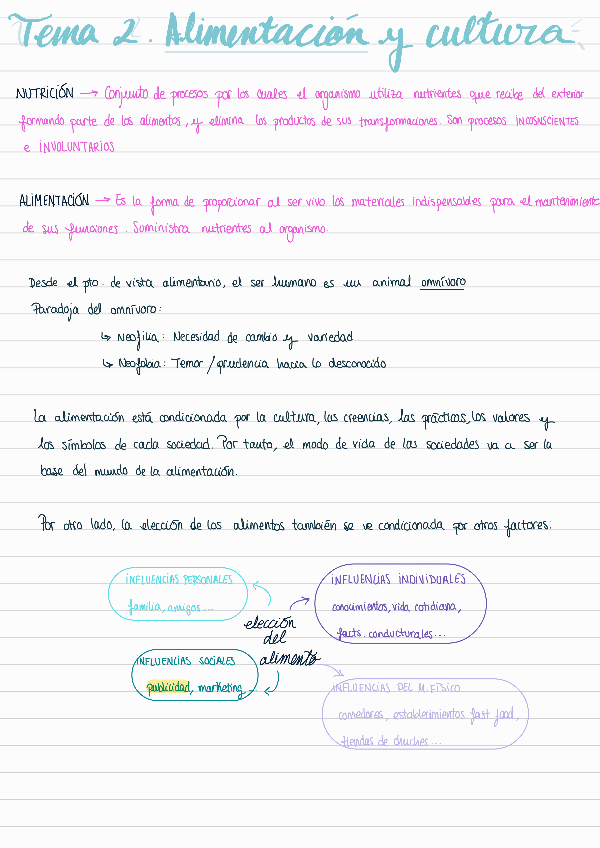 Tema 2. Alimentación y cultura
NUTRICIÓN → Conjunto de procesos por los cuales el organismo utiliza nutrientes que recibe del exterior
formando parte de los alimentos, y elimina los productos de sus transformaciones. Son procesos INCOSNSCIENTES
e INVOLUNTARIOS
ALIMENTACIÓN → Es la forma de proporcionar al ser vivo los materiales indispensables para el mantenimiento
de sus funciones. Suministra nutrientes al organismo.
Desde el pto. de vista alimentario, el ser humano es un animal omnívoro
Paradoja del omnívoro:
↳ Neofilia: Necesidad de cambio y variedad
↳ Neofobia: Temor / prudencia hacia lo desconocido
La alimentación está condicionada por la cultura, las creencias, las prácticas, los valores y
los símbolos de cada sociedad. Por tanto, el modo de vida de las sociedades va a ser la
base del mundo de la alimentación.
Por otro lado, la elección de los alimentos también se ve condicionada por otros factores:
INFLUENCIAS PERSONALES
familia, amigos...
INFLUENCIAS INDIVIDUALES
conocimientos, vida cotidiana,
facts. conductuales...
elección
del
alimento
INFLUENCIAS SOCIALES
publicidad, marketing...
INFLUENCIAS DEL M. FÍSICO
comedores, establecimientos fast food,
tiendas de chuches...